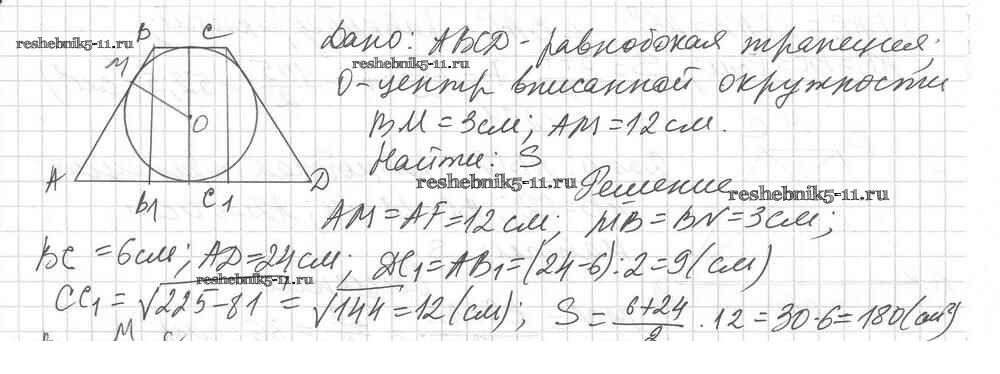 B C
reshebnik5-11.ru
Дано: ABCD - равнобокая трапеция;
M
reshebnik5-11.ru
O-центр вписанной окружности
O
BM = 3см; AM = 12 см.
Найти: S
A D
reshebnik5-11.ru Решение
reshebnik5-11.ru
B1 C1
AM = AF = 12 см; MB = BN = 3см;
BC = 6см; AD = 24 см; DC1 = AB1 = (24-6):2 = 9 (см)
reshebnik5-11.ru
CC1 = √225-81 = √144 = 12 (см); S = 6+24/2 · 12 = 30·6 = 180 (см²)
M